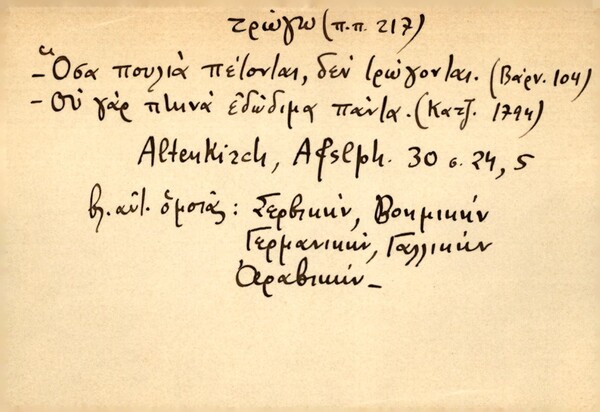 τρώγω (π.π. 217)
- Ὅσα πουλιὰ πέτονται, δὲν τρώγονται. (Βάρν. 104)
- Οὐ γὰρ πτηνὰ ἐδώδιμα πάντα. (Κατζ. 1794)
Altenkirch, Afslph. 30 σ. 24, 5
βλ. αὐτ. ὁμοίας: Σερβικήν, Βοημικήν
Γερμανικήν, Γαλλικήν
Ἀραβικήν_